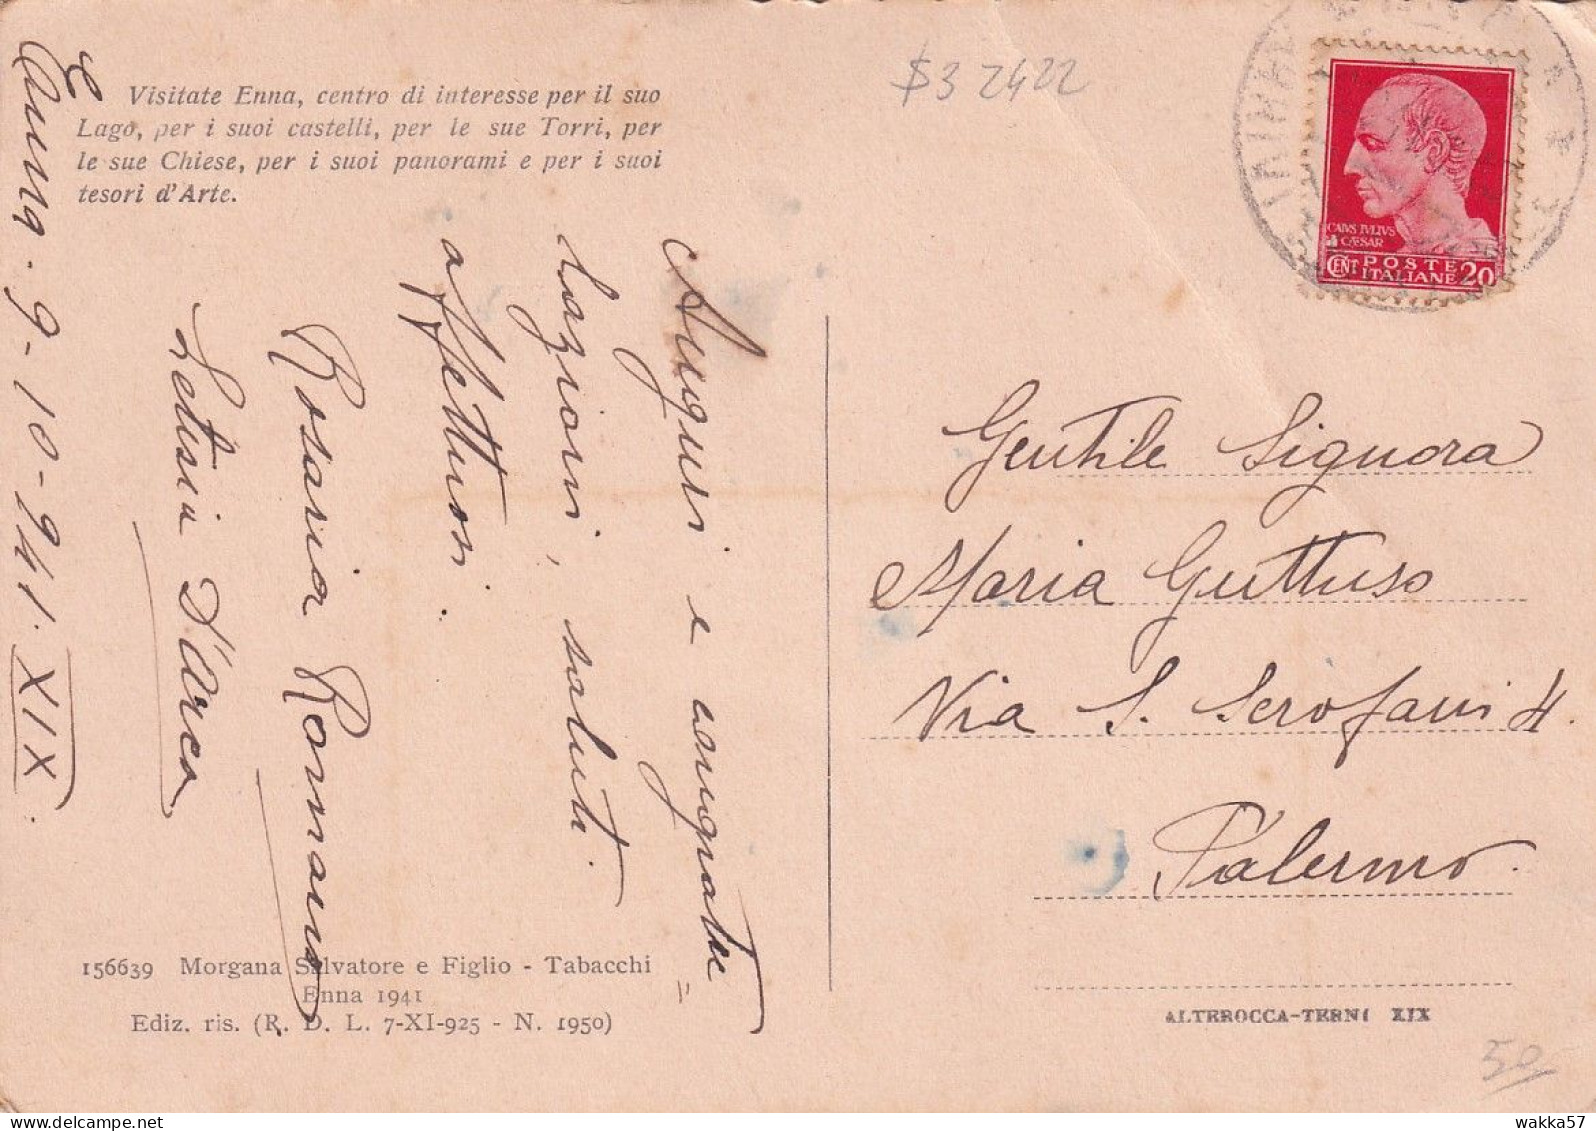 Visitate Enna, centro di interesse per il suo
Lago, per i suoi castelli, per le sue Torri, per
le sue Chiese, per i suoi panorami e per i suoi
tesori d'Arte.
Enna. 9-10-941. XIX.
Auguri e congratu=
lazioni, saluti
affettuosi.
Rosaria Romano
Letizia D'Arca
156639 Morgana Salvatore e Figlio - Tabacchi
Enna 1941
Ediz. ris. (R. D. L. 7-XI-925 - N. 1950)
$3 2422
CAIVS IVLIVS
CÆSAR
CENT POSTE ITALIANE 20
Gentile Signora
Maria Guttuso
Via S. Serofani 4.
Palermo.
ALTEROCCA-TERNI XIX
50
wakka57